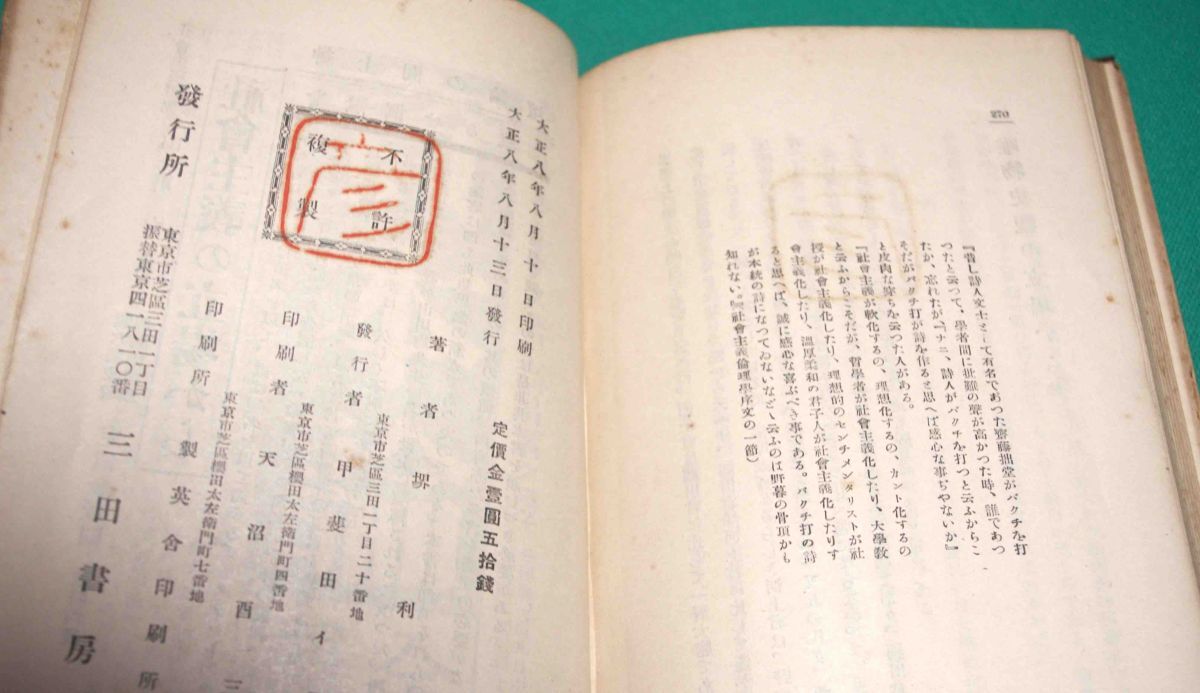 270
『昔し詩人文士として有名であつた齋藤拙堂がバクチを打
つたと云つて、學者間に批難の聲が高かつた時、誰であつ
たか、忘れたが『ナニ、詩人がバクチを打つと云ふからこ
そだがバクチ打が詩を作ると思へば感心な事ぢやないか』
と皮肉な穿ちを云つた人がある。
『社會主義が軟化するの、理想化するの、カント化するの
と云ふからこそだが、哲學者が社會主義化したり、大學敎
授が社會主義化したり、理想的のセンチメンタリストが社
會主義化したり、溫厚柔和の君子人が社會主義化したりす
ると思へば、誠に感心な喜ぶべき事である。バクチ打の詩
が本統の詩になつてゐないなど云ふのは野暮の骨頂かも
知れない。』（社會主義倫理學序文の一節）
大正八年八月十日印刷
大正八年八月十三日發行
定價金壹圓五拾錢
不許
複製
著者 堺 利
東京市芝區三田一丁目二十番地
發行者 甲斐田イ
東京市芝區櫻田太左衛門町四番地
印刷者 天沼酉三
東京市芝區櫻田太左衛門町七番地
印刷所 製英舍印刷所
發行所
東京市芝區三田一丁目
振替東京四一八一〇番
三田書房